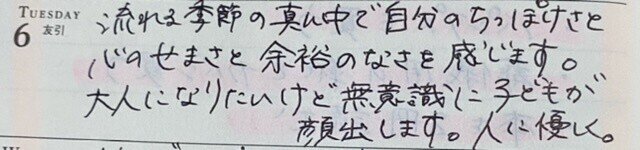 TUESDAY
6 友引
流れる季節の真ん中で自分のちっぽけさと
心のせまさと余裕のなさを感じます。
大人になりたいけど無意識に子どもが
顔出します。人に優しく。